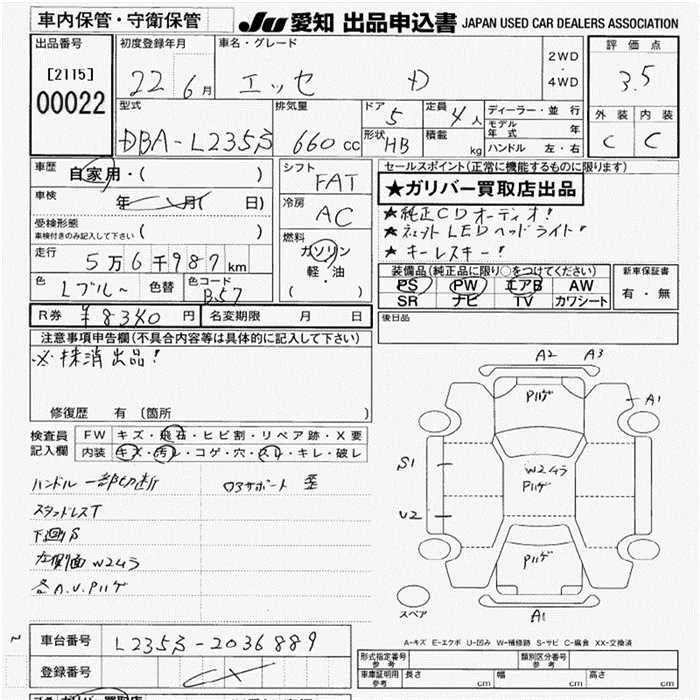 車内保管・守衛保管
JU 愛知 出品申込書 JAPAN USED CAR DEALERS ASSOCIATION
出品番号
[2115]
00022
初度登録年月
22 6月
車名・グレード
エッセ D
2WD
・
4WD
評価点
3.5
外装 内装
C C
型式
DBA-L235S
排気量
660 cc
ドア
5
定員
4人
形状 HB
積載 kg
ディーラー・並行
モデル年式 年
ハンドル 左・右
車歴
自家用・( )
車検
年 月( 日)
受検形態
車検付きのみ記入して下さい ( )
走行
5万6千987km
色 Lブルー 色替 色コード B57
シフト
FAT
冷房
AC
燃料
ガソリン
軽・油
( )
セールスポイント(正常に機能するものに限ります)
★ガリバー買取店出品
★純正CDオーディオ!
LEDヘッドライト!
★キーレスキー!
装備品(純正品に限り○をつけてください)
PS PW エアB AW
SR ナビ TV カワシート
新車保証書
有・無
R券 ¥8340 円 名変期限 月 日
後日品
注意事項申告欄(不具合内容等は具体的に記入して下さい)
※抹消出品!
修復歴 有 (箇所 )
検査員記入欄
FW キズ・飛石・ヒビ割・リペア跡・X要
内装 キズ・汚れ・コゲ・穴・スレ・キレ・破レ
ハンドル 一部切断
ロアサポート 歪
スタッドレスT
下回りS
左側面 W2ムラ
各A.U.Pハゲ
A2 A3
Pハゲ
A1
S1
W2ムラ
Pハゲ
U2
Pハゲ
スペア
A1
A-キズ E-エクボ U-凹み W-補修跡 S-サビ C-腐食 XX-交換済
車台番号 L235S-2036889
登録番号
形式指定番号 参考
類別区分番号 参考
車庫証明用 参考 長さ cm 幅 cm 高さ cm
ガリバー買取店